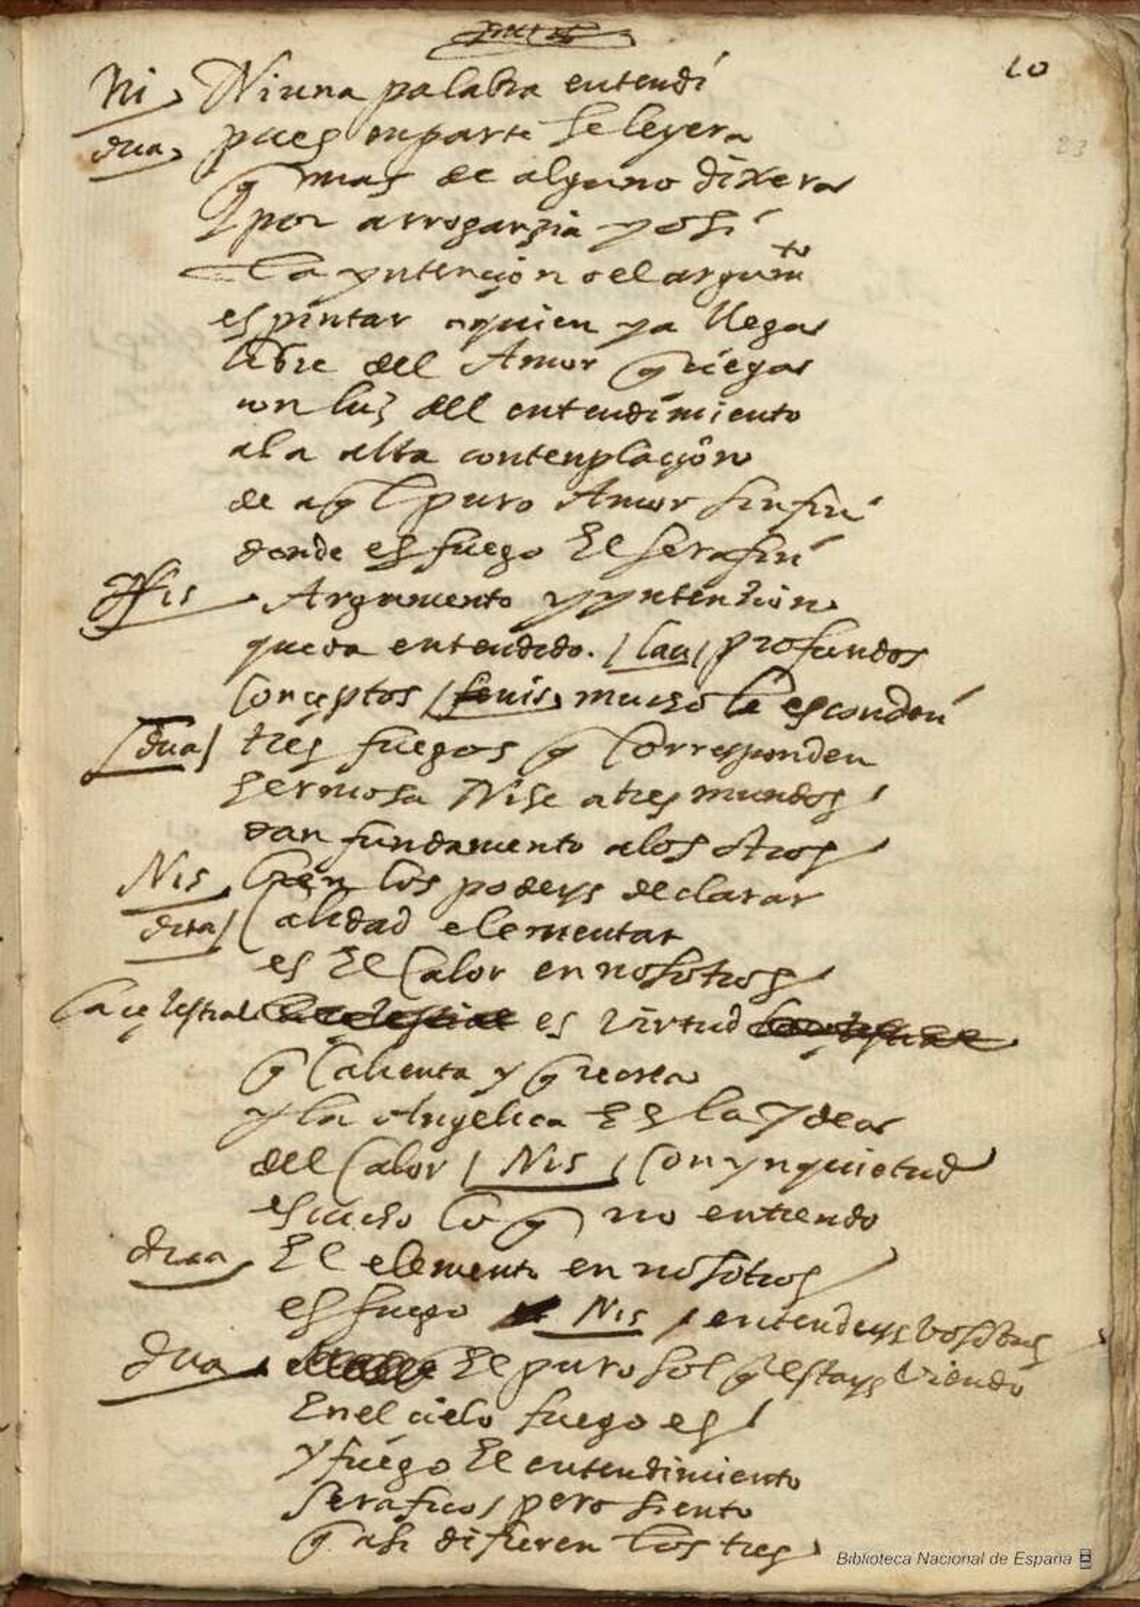 10
23
Ni Niuna palabra entendi
dua pues en parte se leyera
q mas de alguno dixera
por arroganzia yo si
la yntencion o el argumto
es pintar a quien ya llega
libre del Amor q ciega
con luz del entendimiento
a la alta contenplaçion
de aql puro Amor sin fin
donde es fuego El serafin
Nis Argumento y yntenzion
queda entendido. / lau / profundos
Conceptos / fenis mucho le esconden
dua tres fuegos q Corresponden
hermosa Nise a tres mundos
dan fundamento a los otros
Nis bien los podeys declarar
dua Calidad elementar
es El Calor en nosotros
la çelestial es virtud
q Calienta y q recrea
y la Angelica Es la Ydea
del Calor / Nis / Con ynquietud
escucho lo q no entiendo
dua El elemento en nosotros
es fuego Nis / entendeys vosotros
dua El puro sol q estays viendo
En el cielo fuego es
y fuego El entendimiento
serafico / pero siento
q asi difieren los tres
Biblioteca Nacional de España